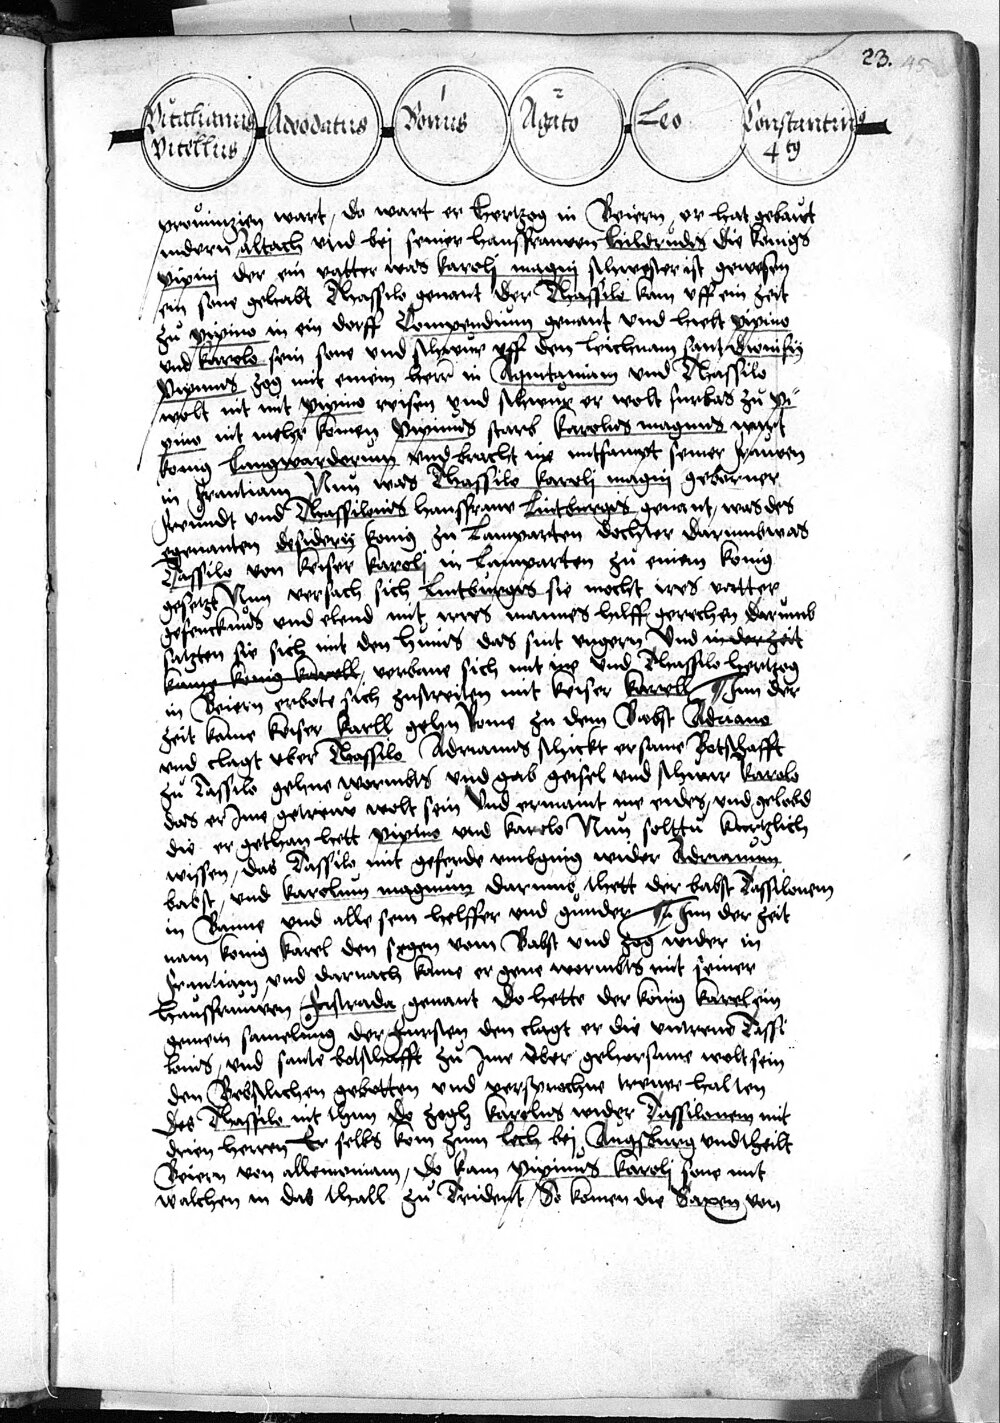 23.
45
Vitalianus Adeodatus Bonus 1 Agato 2 Leo Constantinus
Vitellus 4 tg
prouintzien wart, do wart er hertzog in Beiern, er hat gebaut
nidern altach vnd bej seiner haussfrauwen hildrudis die konigs
pipinj der ein vatter was karolj magnj schwester ist gewesen
ein sone gehabt Thassilo genant der Thassilo kam vff ein zeit
zu pipino in ein dorff Compendium genant vnd hielt pipino
vnd karolo sein sone vnd schwure vff den leichnam sant dionisij
Pipinus zog mit einem herr in Aquitaniam vnd Thassilo
wolt nit mit pipino reisen vnd schwure er wolt furbas zu pi-
pino nit mehr komen pipinus starb karolus magnus wart
konig langwardorum vnd bracht ine mitsampt seiner frauwen
in frantiam Nun was Thassilo karolj magnj geborner
freundt vnd Thassilonis haussfrauw luitburgis genant, was des
egenanten desiderij konig zu Lamparten dochter darumb was
Tassilo von keiser karolj in Lamparten zu einem konig
gesetzt Nun versach sich luitburgis sie mocht ires vatter
gefencknus vnd elend mit ires mannes hilff gerechen darumb
satzten sie sich mit den hunis das sint vngern vnd in der zeit
kame konig karoll, verbane sich mit ine vnd Thassilo hertzog
in Beiern erbote sich zustreiten mit keiser karoll Inn der
zeit kame keiser karll gehn Rome zu dem Babst Adriano
vnd clagt vber Thassilo Adrianus schickt ersame Botschafft
zu Tassilo gehne wormbs vnd gab geisel vnd schwur karolo
das er Ime getreuw wolt sein vnd ermaint ine eides, vnd gelobd
die er gethan hett pipino vnd karolo Nun solttu kurtzlich
wissen, das Tassilo mit geferde vmbgnig wider Adrianum
babst, vnd karolum magnum darumb thett der babst Tassilonem
in Banne vnd alle sein helffer vnd gunder Inn der zeit
nam konig karel den segen vom Babst vnd zog wider in
frantiam vnd darnach kame er gene wormbs mit seiner
haussfrauwen fastrada genant do hette der konig karel ein
gemein samelung der fursten den clagt er die vntreuw Tassi
lonis, vnd sante botschafft zu Ime vber gehorsame wolt sein
den Bebstlichen gebotten vnd versprochne treuwe halten
des Thassilo nit thun do zogh karolus wider Tassilonem mit
drien herren Er selbs kom zum lech bej Augsburg vnd theilt
Beiern von allemaniam, do kam pipinus karolj sone mit
walchen in das thall zu Trident, So komen die Saxen von